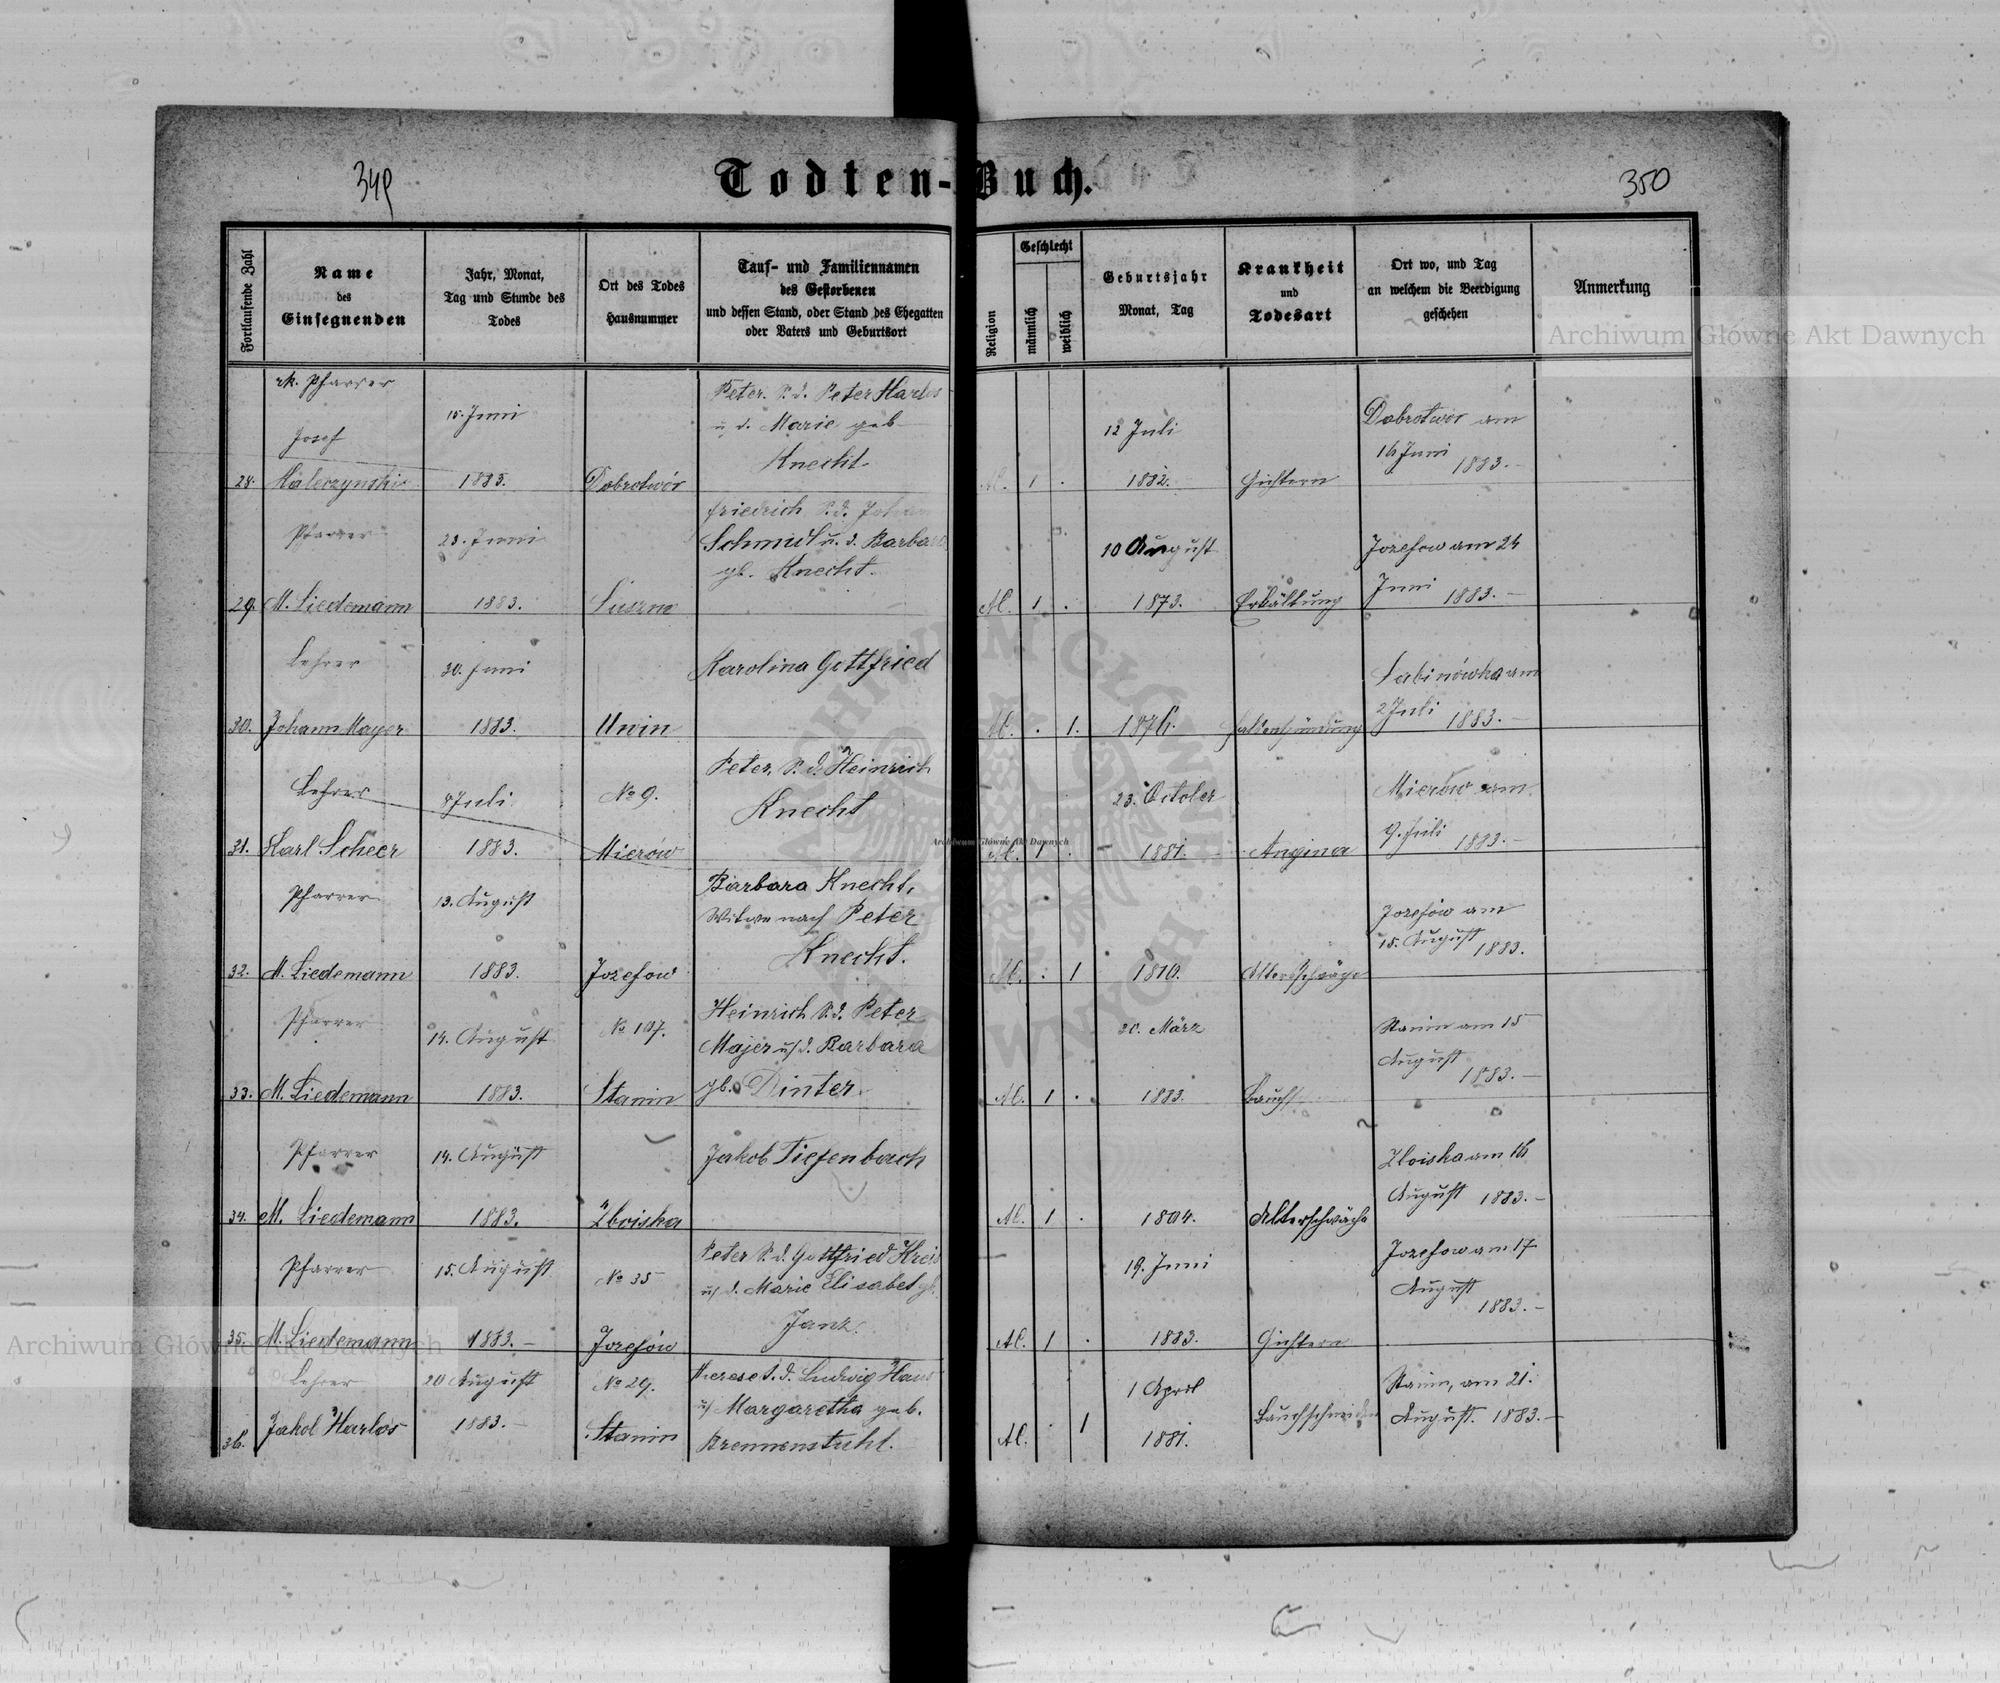 349
Todten-Buch.
350
Fortlaufende Zahl
Name
des
Einsegnenden
Jahr, Monat,
Tag und Stunde des
Todes
Ort des Todes
Hausnummer
Tauf- und Familiennamen
des Gestorbenen
und dessen Stand, oder Stand des Ehegatten
oder Vaters und Geburtsort
Religion
Geschlecht
männlich
weiblich
Geburtsjahr
Monat, Tag
Krankheit
und
Todesart
Ort wo, und Tag
an welchem die Beerdigung
geschehen
Anmerkung
Archiwum Główne Akt Dawnych
28. rk. Pfarrer
Josef
Haleczynski
15. Juni
1883.
Dobrotwór
Peter. S. d. Peter Harlos
u. d. Marie geb
Knecht.
Al. 1 .
12 Juli
1882.
Gichtern
Dobrotwor am
16 Juni
1883.-
29. Pfarrer
M. Liedemann
23. Juni
1883.
Suszno
Friedrich S. d. Johan
Schmidt u. d. Barbara
gb. Knecht.
Al. 1 .
10 August
1873.
Erkältung
Jozefow am 24
Juni
1883.-
30. Lehrer
Johann Mayer
30. Juni
1883.
Unin
Karolina Gottfried
Al. . 1.
1876.
Sabinówka am
2 Juli
1883.-
31. Lehrer
Karl Scheer
8 Juli
1883.
No 9.
Mierów
Peter, S. d. Heinrich
Knecht
Al. 1 .
23. October
1881.
Angina
Mierów am
9. Juli
1883.-
32. Pfarrer
M. Liedemann
13. August
1883.
Jozefow
Barbara Knecht,
Witwe nach Peter
Knecht.
Al. . 1
1810.
Altersschwäche
Jozefow am
15. August
1883.
33. Pfarrer
M. Liedemann
14. August
1883.
No 107.
Stanin
Heinrich S. d. Peter
Majer u/ d. Barbara
gb. Dinter.
Al. 1 .
20. März
1883.
Stanin am 15
August
1883.-
34. Pfarrer
M. Liedemann
14. August
1883.
Zboiska
Jakob Tiefenbach
Al. 1 .
1804.
Alterschwäche
Zboiska am 16
August 1883.-
35. Pfarrer
M. Liedemann
15. August
1883.-
No 35
Jozefów
Peter S. d. Gottfried Kreis
u/ d. Marie Elisabet gb.
Janz.
Al. 1 .
19. Juni
1883.
Gichtern
Jozefow am 17
August
1883.-
36. Lehrer
Jakob Harlos
20 August
1883.-
No 29.
Stanin
Therese t. d. Ludwig Haus
u/ Margaretha geb.
Brennenstuhl.
Al. . 1
1 April
1881.
Bauchschneiden
Stanin, am 21.
August. 1883.-
Archiwum Główne Akt Dawnych
Archiwum Główne Akt Dawnych
ARCHIWUM GŁÓWNE AKT DAWNYCH